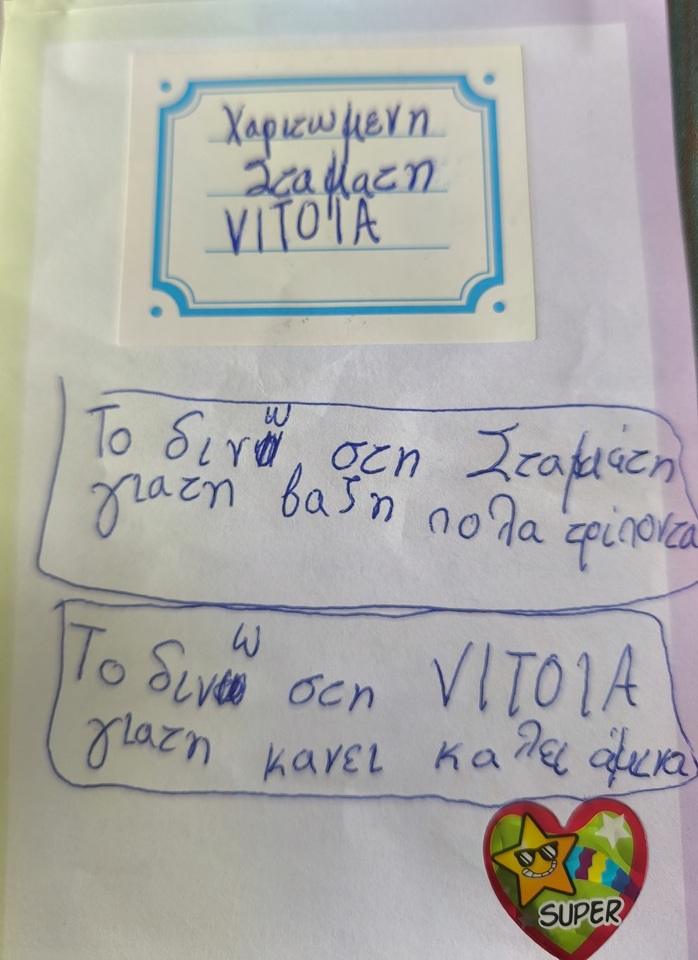 Χαριτωμενη
Σταματη
VITOIA
Το δινω στη Σταμάτη
γιατη βαζη πολα τρίποντα
Το δινω στη VITOIA
γιατη κανει καλει άμενα
SUPER